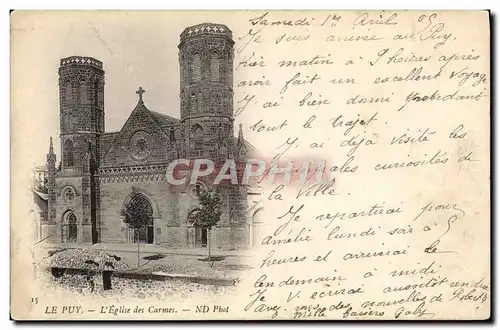 Samedi 1er Avril 05
Je suis arrivée au Puy,
hier matin à 9 heures après
avoir fait un excellent voyage
j'ai bien dormi pendant
tout le trajet.
J'ai déjà visité les
principales curiosités de
la Ville
CARTE POSTALE.COM
Je repartirai pour
Amélie lundi soir à 5
heures et arriverai le
lendemain à midi
Je vous écrirai aussitôt rendue
Avez vous des nouvelles de Robert
mille baisers Gaby
15
LE PUY. — L'Église des Carmes. — ND Phot